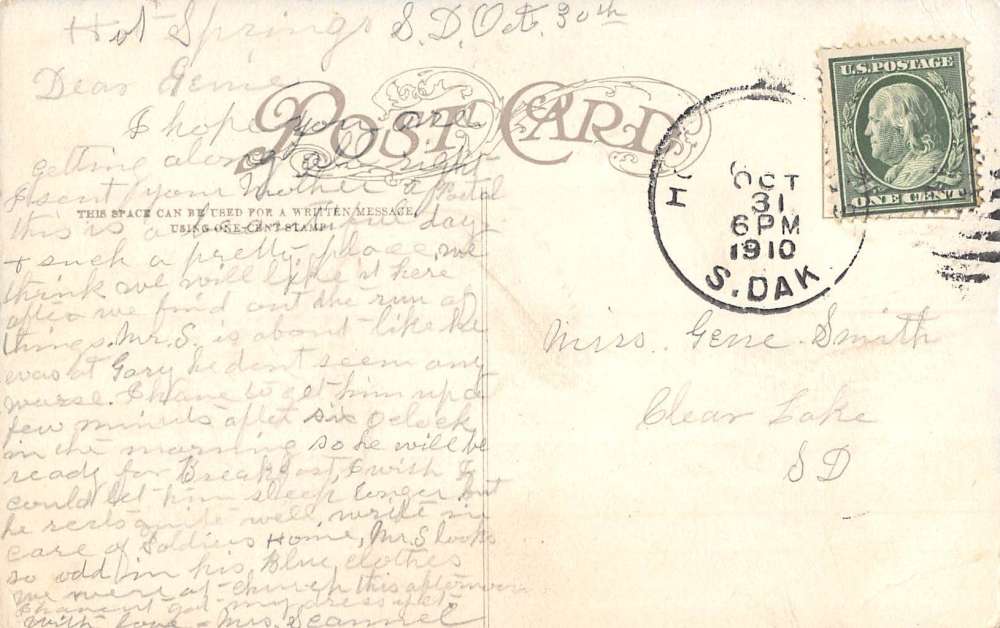 Hot Springs S.D. Oct. 30th
Dear Genie
I hope you are
getting along all right
I sent your Mother a Postal
this is a beautiful day
& such a pretty place, we
think we will like it here
after we find out the run of
things. Mr. S. is about like he
was at Gary he dont seem any
worse. I have to get him up a
few minuts after six Oclock
in the morning so he will be
ready for Breakfast, I wish I
could let him sleep longer but
he rests quite well, write in
care of Soldiers Home, Mr. S looks
so odd in his Blue clothes
we were at church this afternoon
I havent got my dress yet
with love - Mrs.
POST CARD
THIS SPACE CAN BE USED FOR A WRITTEN MESSAGE,
USING ONE-CENT STAMP
U.S. POSTAGE
ONE CENT
OCT
31
6 PM
1910
S. DAK
Miss. Gene Smith
Clear Lake
SD